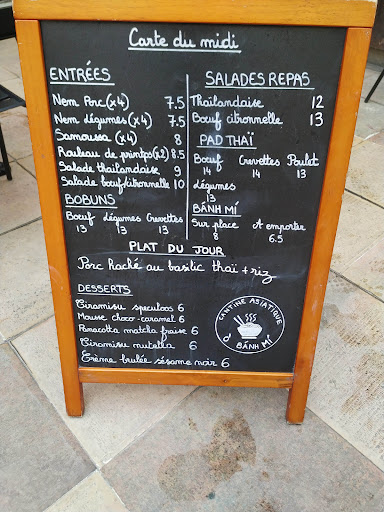 Carte du midi
ENTRÉES
Nem Porc (x4) 7.5
Nem Légumes (x4) 7.5
Samoussa (x4) 8
Rouleau de printps (x2) 8.5
Salade thaïlandaise 9
Salade boeuf citronnelle 10
BOBUNS
Boeuf Légumes Crevettes
13 13 13
SALADES REPAS
Thaïlandaise 12
Boeuf citronnelle 13
PAD THAÏ
Boeuf Crevettes Poulet
14 14 13
Légumes
13
BÁNH MÍ
Sur place A emporter
8 6.5
PLAT DU JOUR
Porc haché au basilic thaï + riz
DESSERTS
Tiramisu speculoos 6
Mousse choco-caramel 6
Panacotta matcha fraise 6
Tiramisu nutella 6
Crème brulée sésame noir 6
CANTINE ASIATIQUE
Ô BÁNH MÍ